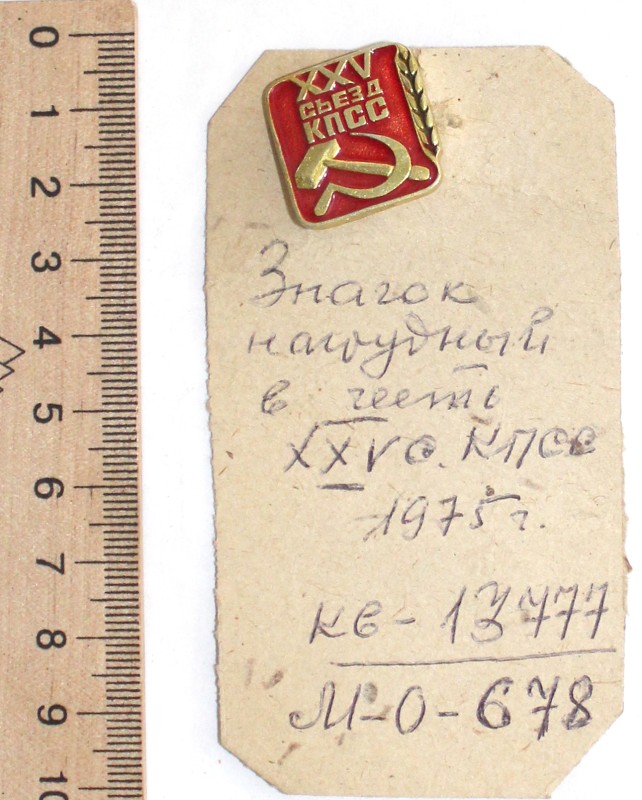 XXV
СЪЕЗД
КПСС
Значок
нагрудный
в честь
XXV с. КПСС
1975 г.
КВ - 13777
М-О-678
0
1
2
3
4
5
6
7
8
9
10